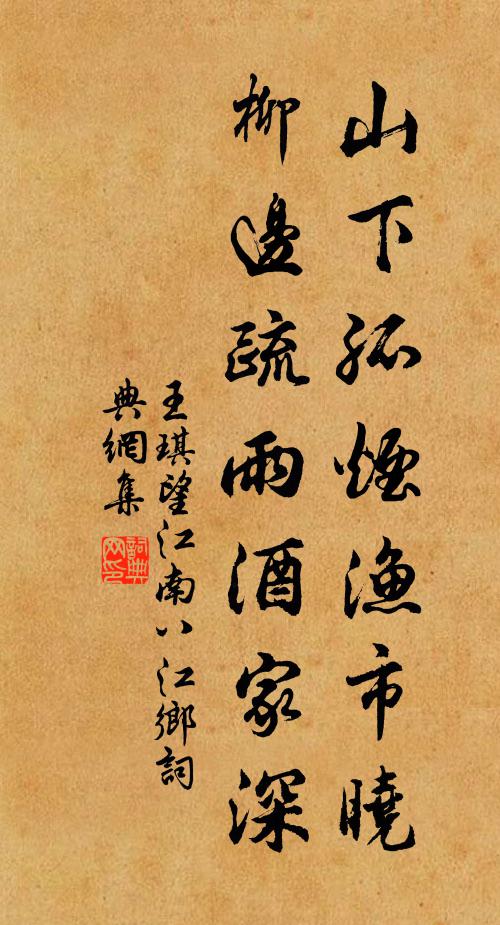 山下孤煙漁市曉
柳邊疏雨酒家深
王琪望江南八江鄉詞
典網集
詞典
网印